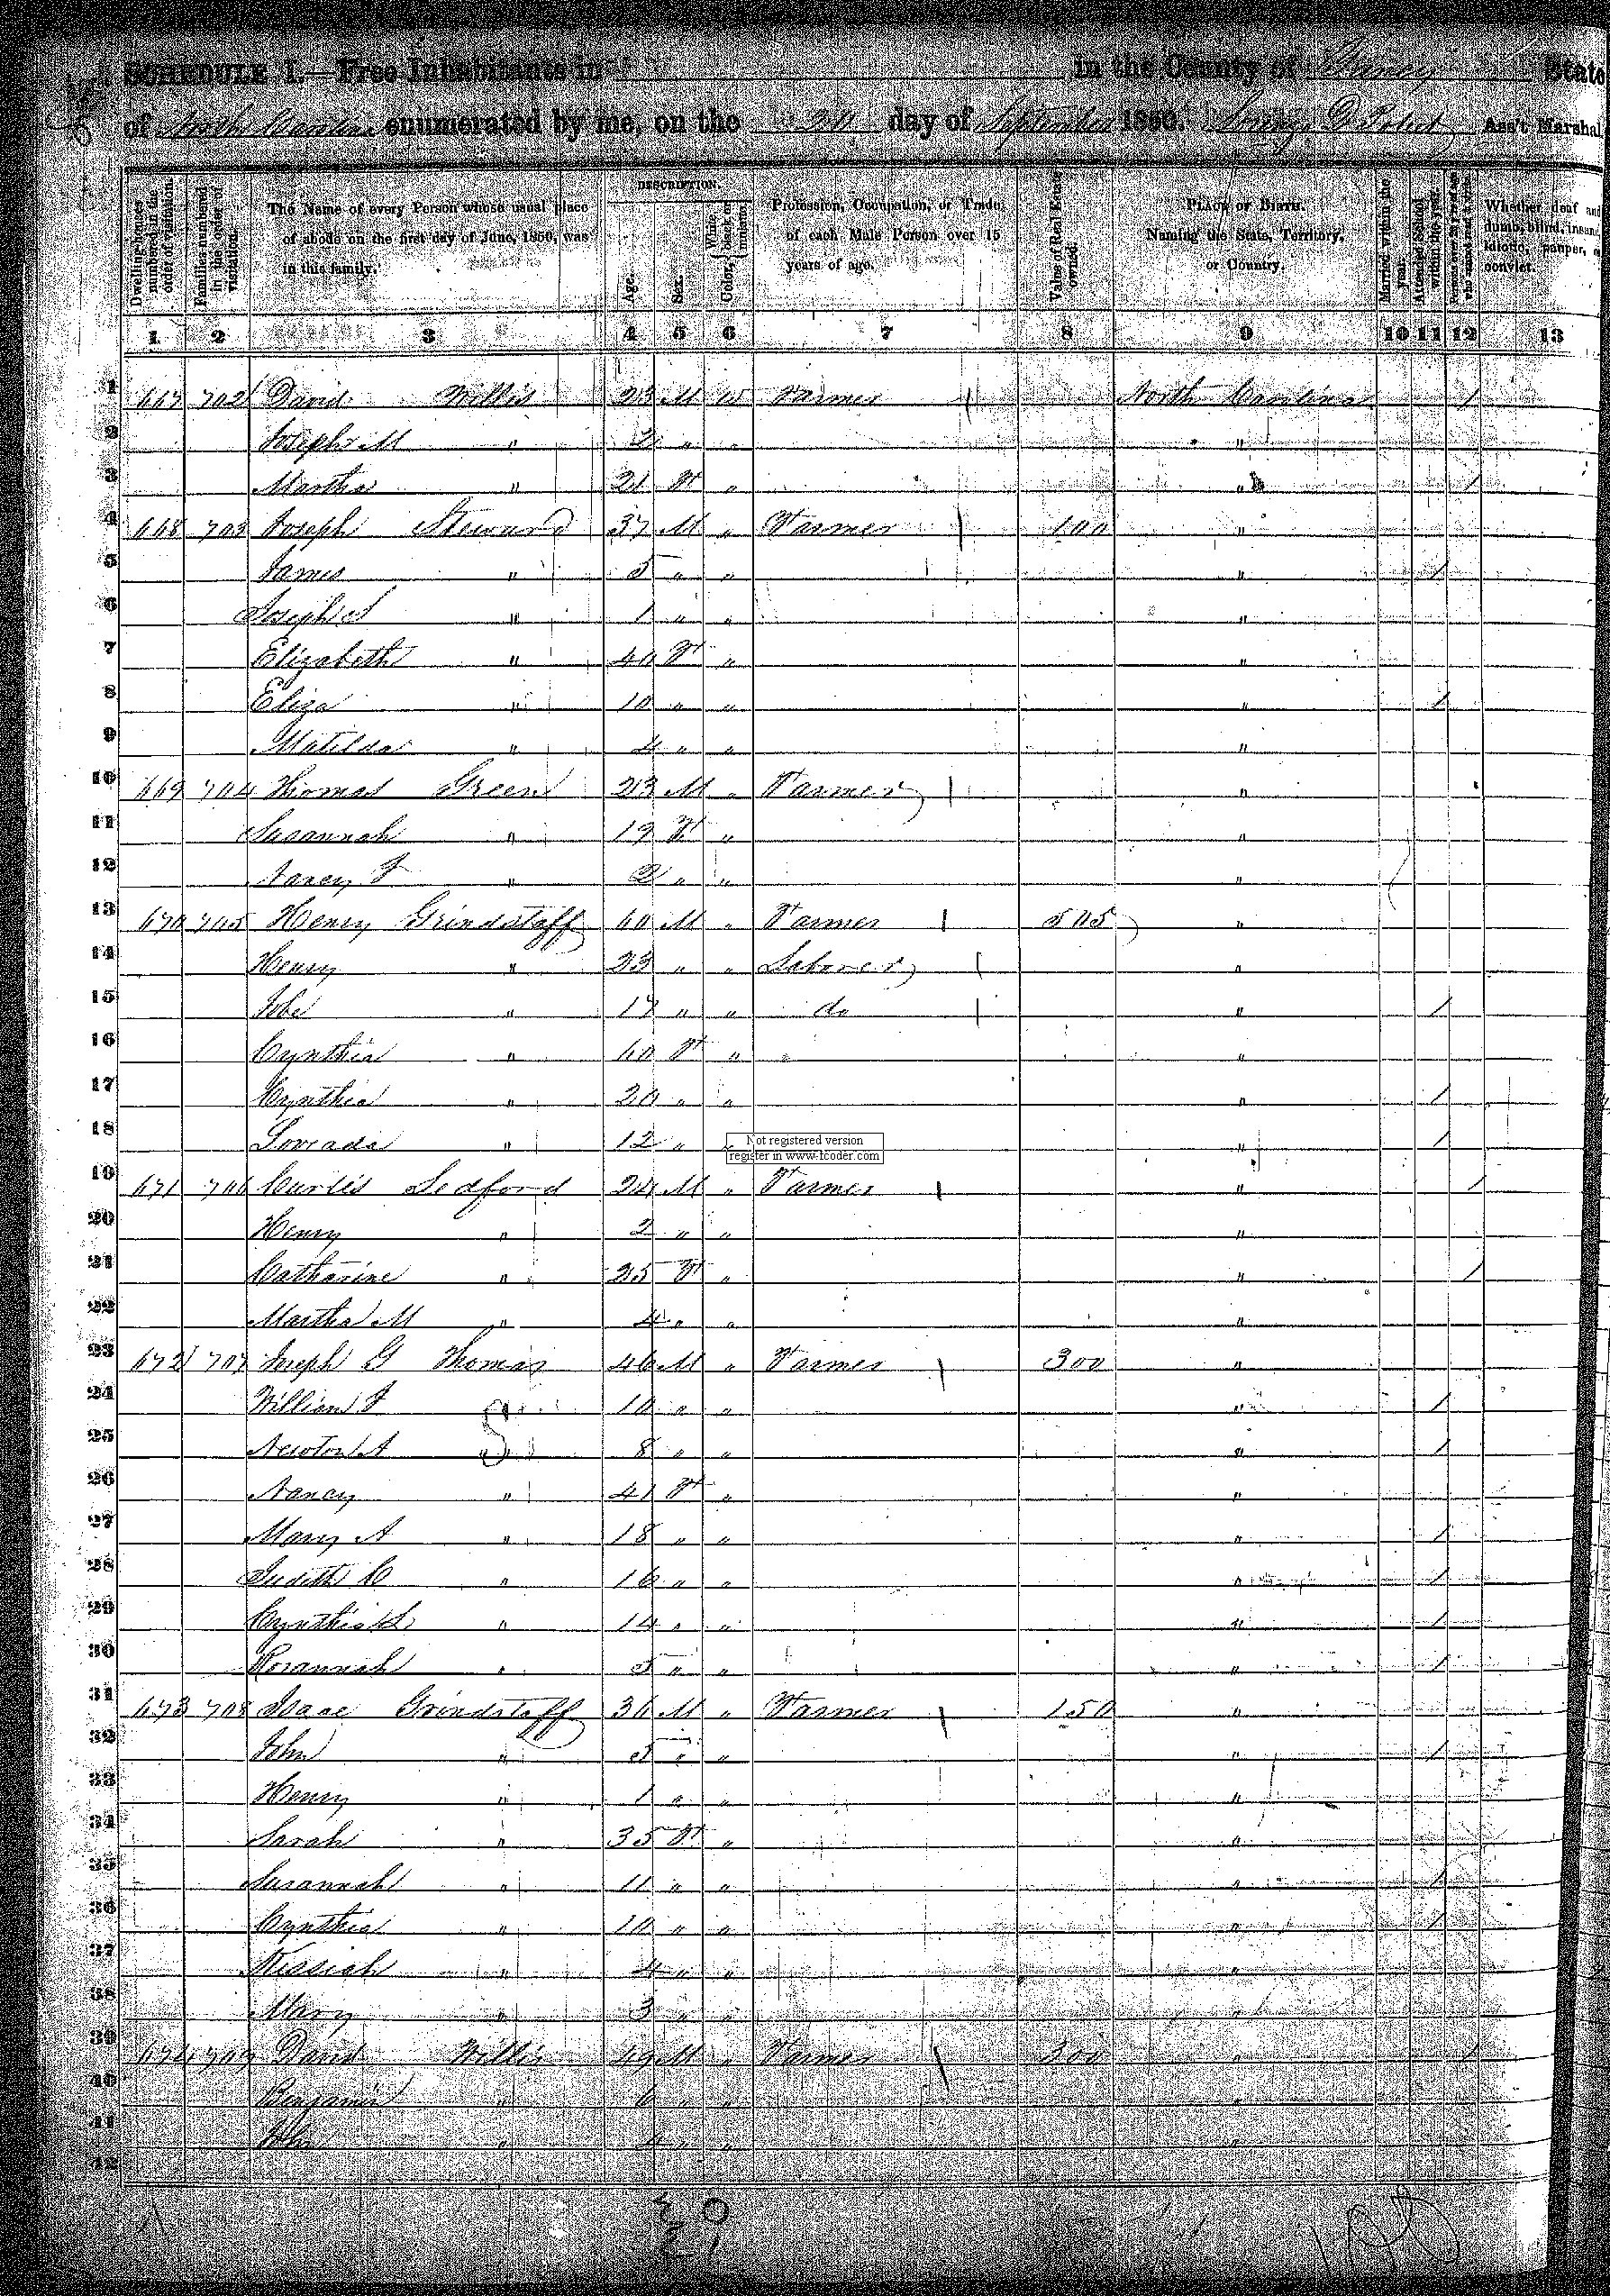 SCHEDULE I.—Free Inhabitants in in the County of Yancey State
of North Carolina enumerated by me, on the 20 day of September 1850. Ass't Marshal
Dwelling-houses numbered in the order of visitation.
Families numbered in the order of visitation.
The Name of every Person whose usual place of abode on the first day of June, 1850, was in this family.
DESCRIPTION.
Age.
Sex.
Color, White, black, or mulatto.
Profession, Occupation, or Trade of each Male Person over 15 years of age.
Value of Real Estate owned.
PLACE OF BIRTH. Naming the State, Territory, or Country.
Married within the year.
Attended School within the year.
Persons over 20 y'rs of age who cannot read & write.
Whether deaf and dumb, blind, insane, idiotic, pauper, or convict.
1 2 3 4 5 6 7 8 9 10 11 12 13
1 667 702 David Willis 23 M W Farmer North Carolina /
2 Joseph M " 2 " " "
3 Martha " 21 F " " /
4 668 703 Joseph Steward 37 M " Farmer 100 "
5 James " 5 " " " /
6 Joseph S " 1 " " "
7 Elizabeth " 40 F " "
8 Eliza " 10 " " " /
9 Matilda " 4 " " "
10 669 704 Thomas Green 23 M " Farmer "
11 Susannah " 19 F " "
12 Nancy " 2 " " "
13 670 705 Henry Grindstaff 60 M " Farmer 505 "
14 Henry " 23 " " Laborer "
15 Jobe " 17 " " do " /
16 Cynthia " 60 F " "
17 Cynthia " 20 " " " /
18 " 12 " " " /
Not registered version
register in www-tcoder.com
19 671 706 Curtis Ledford 24 M " Farmer " /
20 Henry " 2 " " "
21 Catharine " 25 F " " /
22 Martha M " 4 " " "
23 672 707 Joseph G Thomas 46 M " Farmer 300 "
24 William " 10 " " " /
25 Newton A " 8 " " " /
26 Nancy " 41 F " "
27 Mary A " 18 " " " /
28 Judith C " 16 " " " /
29 Cynthia L " 14 " " " /
30 Rosannah " 5 " " " /
31 673 708 Isaac Grindstaff 36 M " Farmer 150 "
32 John " 5 " " " /
33 Henry " 1 " " "
34 Sarah " 35 F " "
35 Susannah " 11 " " " /
36 Cynthia " 10 " " " /
37 Kissiah " 4 " " "
38 Mary " 3 " " "
39 674 709 David Willis 49 M " Farmer 300 " /
40 Benjamin " 6 " " "
41 John " 4 " " "
42